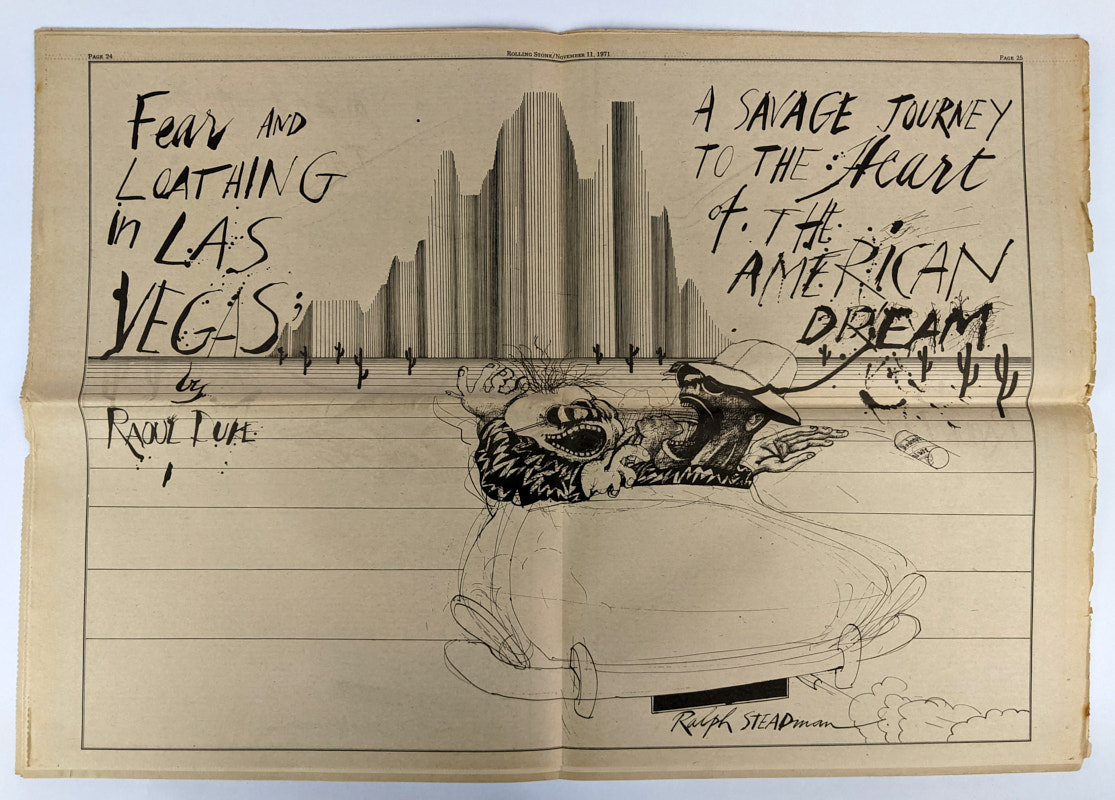 PAGE 24
ROLLING STONE/NOVEMBER 11, 1971
PAGE 25
Fear AND
LOATHING
in LAS
VEGAS;
by
RAOUL DUKE
A SAVAGE JOURNEY
TO THE Heart
of. THE
AMERICAN
DREAM
Ralph STEADman